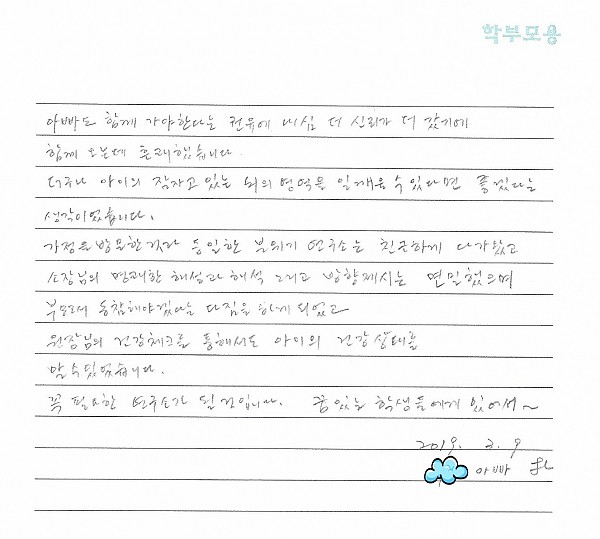 학부모용
아빠도 함께 가야한다는 권유에 내심 더 신뢰가 더 갔기에
함께 오는데 흔쾌했습니다.
더구나 아이의 잠자고 있는 뇌의 영역을 일깨울 수 있다면 좋겠다는
생각이었습니다.
가정을 방문한것과 동일한 분위기 연구소는 친근하게 다가왔고
소장님의 명쾌한 해설과 해석 그리고 방향제시는 면밀했으며
부모로서 동참해야겠다는 다짐을 하게 되었고
원장님의 건강체크를 통해서도 아이의 건강상태를
알 수 있었습니다.
꼭 필요한 연구소가 될 것입니다. 꿈있는 학생들에게 있어서~
2019. 2. 9
아빠